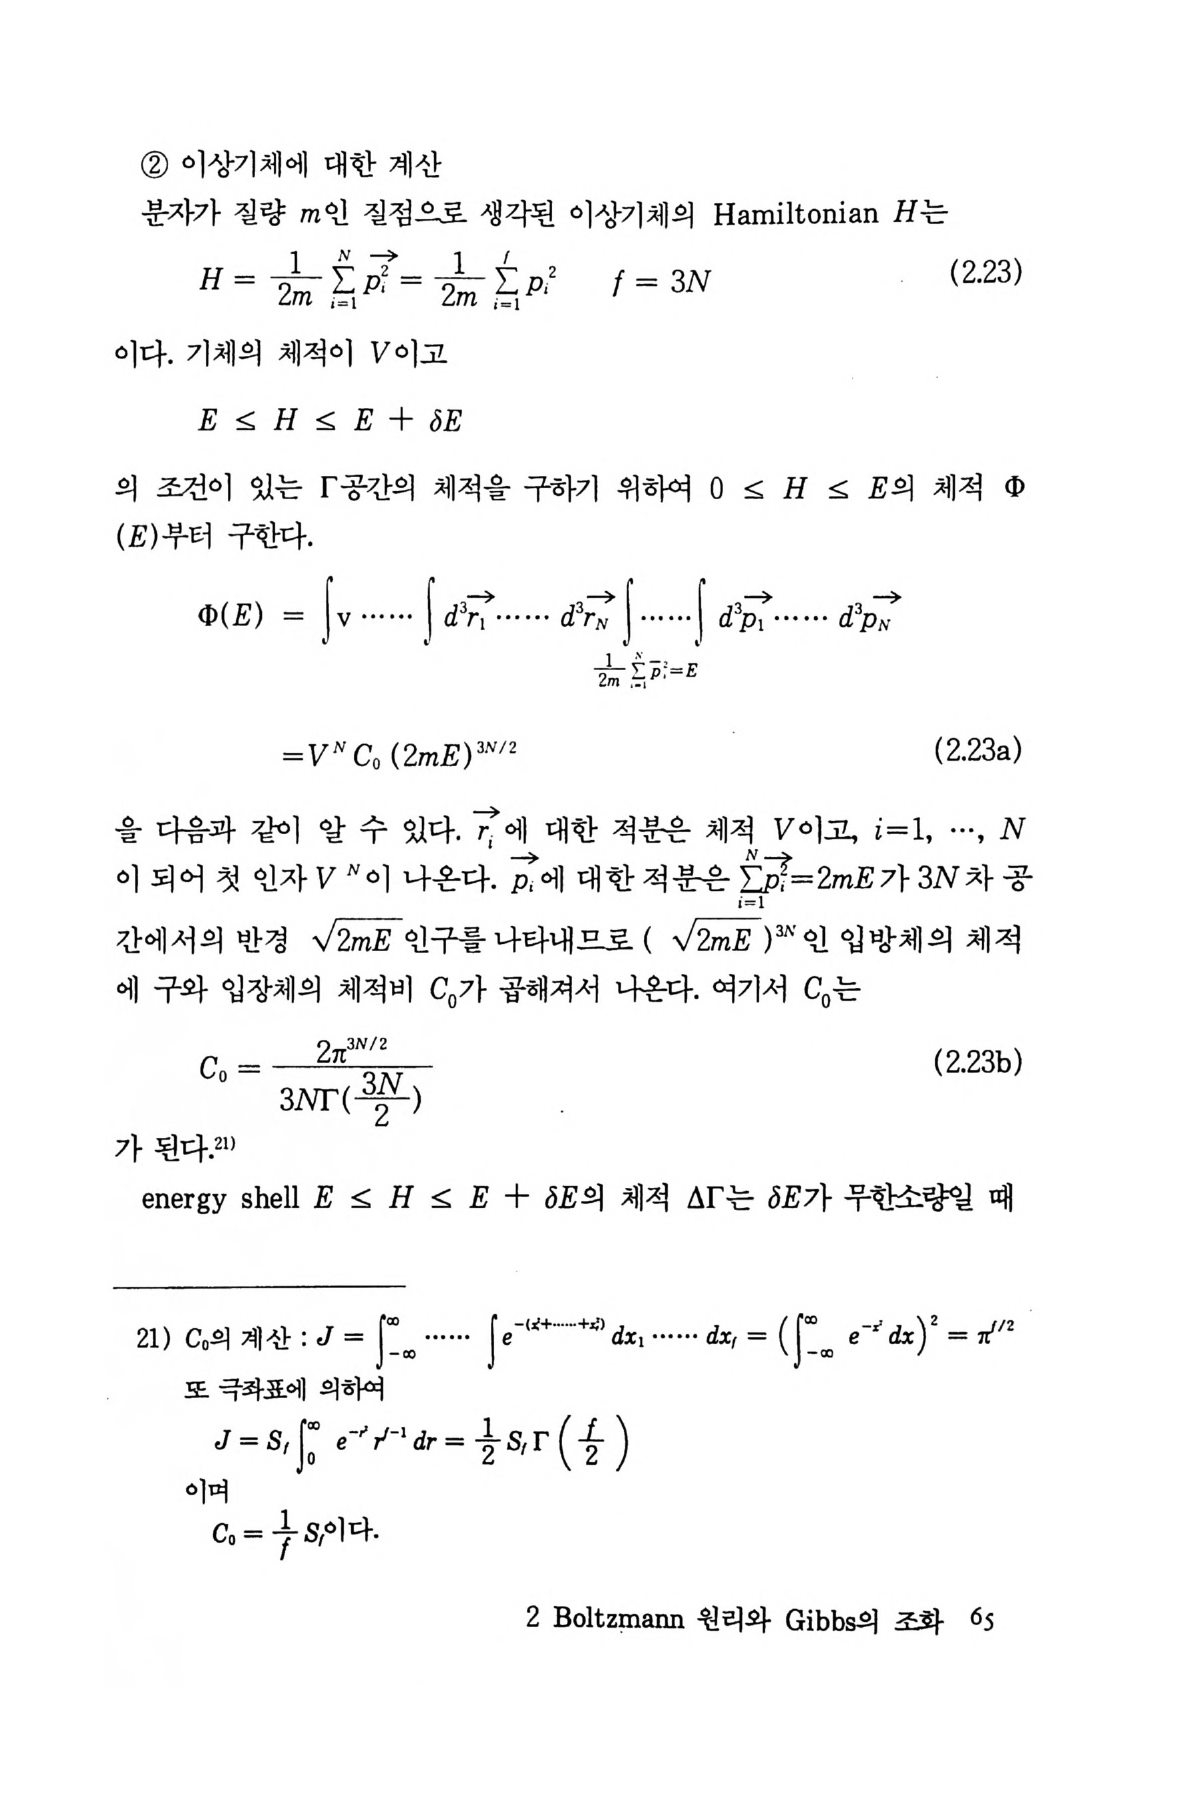 ② 이상기체에 대한 계산
분자가 질량 m인 질점으로 생각된 이상기체의 Hamiltonian H는
H = \frac{1}{2m} \sum_{i=1}^{N} \overrightarrow{p_i^2} = \frac{1}{2m} \sum_{i=1}^{f} p_i^2   f = 3N   (2.23)
이다. 기체의 체적이 V이고
E ≤ H ≤ E + δE
의 조건이 있는 Γ공간의 체적을 구하기 위하여 0 ≤ H ≤ E의 체적 Φ
(E)부터 구한다.
Φ(E) = ∫v ⋯⋯ ∫ d³\overrightarrow{r_1} ⋯⋯ d³\overrightarrow{r_N} ∫⋯⋯∫ d³\overrightarrow{p_1} ⋯⋯ d³\overrightarrow{p_N}
\frac{1}{2m} \sum_{i=1}^{N} \overline{p}_i^2 = E
=V^N C_0 (2mE)^{3N/2}   (2.23a)
을 다음과 같이 알 수 있다. \overrightarrow{r_i}에 대한 적분은 체적 V이고, i=1, ⋯, N
이 되어 첫 인자 V^N이 나온다. \overrightarrow{p_i}에 대한 적분은 \sum_{i=1}^{N} \overrightarrow{p_i^2}=2mE가 3N차 공
간에서의 반경 \sqrt{2mE} 인구를 나타내므로 ( \sqrt{2mE} )^{3N}인 입방체의 체적
에 구와 입장체의 체적비 C_0가 곱해져서 나온다. 여기서 C_0는
C_0 = \frac{2π^{3N/2}}{3NΓ(\frac{3N}{2})}   (2.23b)
가 된다.21)
energy shell E ≤ H ≤ E + δE의 체적 ΔΓ는 δE가 무한소량일 때
21) C_0의 계산 : J = ∫_{-∞}^{∞} ⋯⋯ ∫ e^{-(x_1^2+⋯⋯+x_f^2)} dx_1 ⋯⋯ dx_f = (∫_{-∞}^{∞} e^{-x^2} dx)^2 = π^{f/2}
또 극좌표에 의하여
J = S_f ∫_0^∞ e^{-r^2} r^{f-1} dr = \frac{1}{2} S_f Γ ( \frac{f}{2} )
이며
C_0 = \frac{1}{f} S_f이다.
2 Boltzmann 원리와 Gibbs의 조화 65